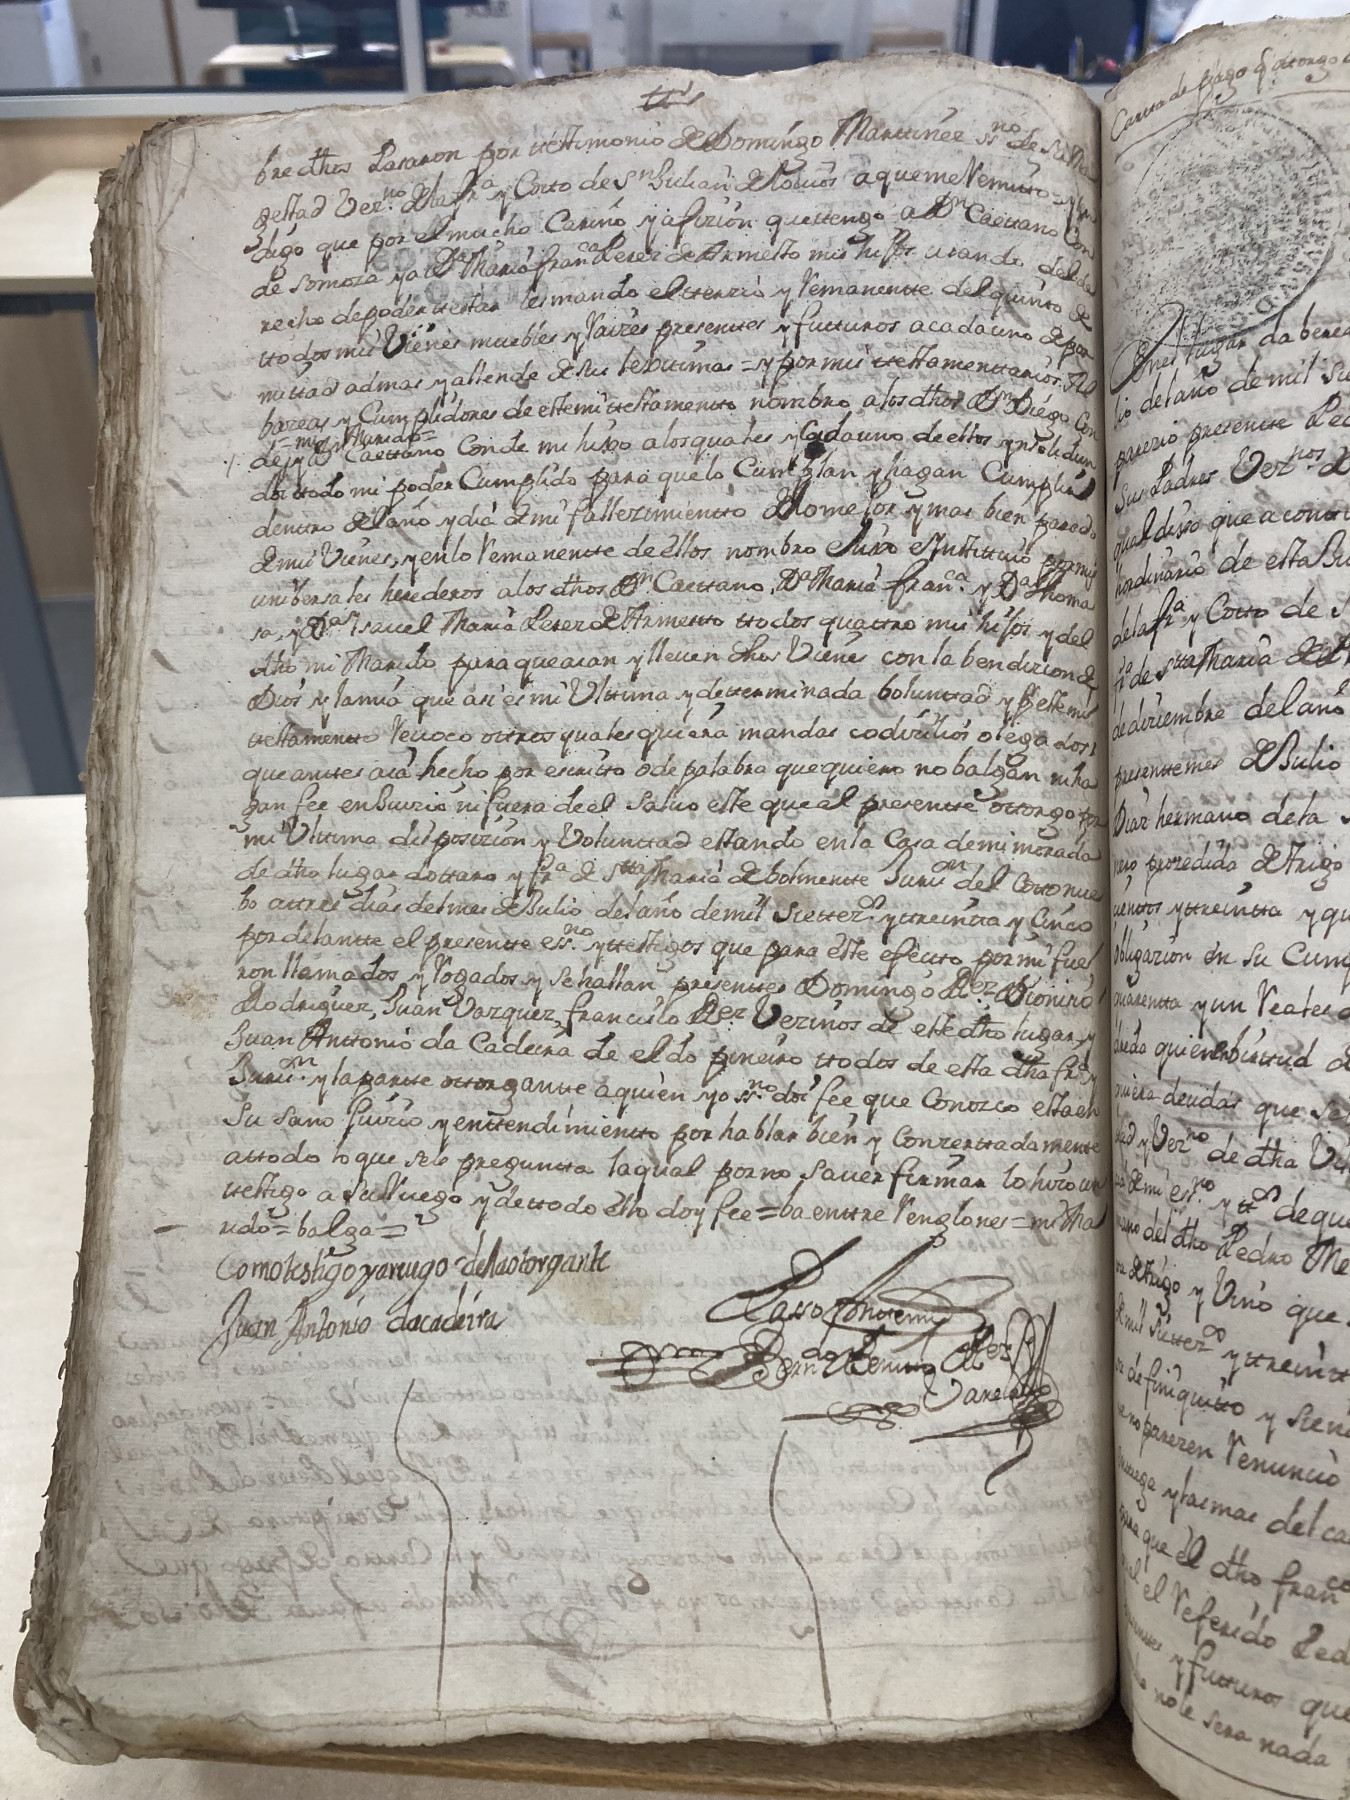 tt̃s
bre dhos Pasaron por testimonio de Domingo Martinez ss.no de su Ma
gestad Vez.no de la fra y Coto de Sn Julian de a que me Remito
digo que por el mucho Cariño y afizion que tengo a Dn Caetano Con
de Somoza y a Da Maria Franca Perez de Armesto mis hijos usando del de
recho de poder testar les mando el terzio y Remanente del quinto de
ttodos mis Vienes muebles y Raizes presentes y futuros a cada uno de por
mittad admas y allende de sus lexitimas = y por mis testamenttarios Al
bazeas y Cumplidores de este mi testamentto nombro a los dhos Dn Diego Con
=mi Marido=
de y Dn Caettano Conde mi hixo a los quales y Cada uno de ellos ynsolidun
doi ttodo mi poder Cumplido para que lo Cumplan y hagan Cumplir
dentro del año y dia de mi fallezimiento de lo mejor y mas bien parado
de mis Vienes, y en lo Remanente de ellos nombro elixo e Ynstituio por mis
unibersales herederos a los dhos Dn Caettano, Da Maria Franca y Da Thoma
sa, y Da Ysauel Maria Perez de Armestto ttodos quattro mis hijos y del
dho mi Marido para que aian y lleuen dhos Vienes con la bendizion de
Dios y la mia que asi es mi Ulttima y determinada boluntad y por este mi
testamento Reuoco ottros quales quiera mandas codizilios o legados
que antes aia hecho por escritto o de palabra que quiero no balgan ni ha
gan fee en Juizio ni fuera de el Saluo este que al presente ottorgo por
mi Ulttima disposizion y Voluntad estando en la Casa de mi morada
de dho lugar dottaro y fra de Stta Maria de bolmente Jurisn del Cotto nue
bo a ttres dias del mes de Julio del año de mil Settezos y treintta y Cinco
por delantte el presente ess.no y testigos que para este efecto por mi fue
ron llamados y Rogados y se hallan presentes Domingo Rez Dionisio
Rodriguez, Juan Vazquez, Francisco Rez Vezinos de este dho lugar y
Juan Anttonio da Cadeira de el do pineiro ttodos de esta dha fra y
Jurisn y la partte ottorgantte a quien yo ss.no doi fee que Conozco esta en
Su sano Juizio y enttendimientto por hablar bien y Conzertadamente
a ttodo lo que se le pregunta la qual por no sauer firmar lo hizo un
testigo a su Ruego y de ttodo ello doy fee = ba enttre Renglones = mi Ma
rido = balga =
Como testigo y a ruego de la otorgante
Juan Antonio dacadeira
Passo ante mi
Bern.do Benito Rez
Varela
Cartta de pago q otorgo
En el lugar da
lio del año de mil se
parezio presente Ped
Sus Padres Vez.nos d
qual dixo que a
hordinario de esta Ju
de la fra y Cotto de S
fra de Stta Maria de
de diziembre del año
presente mes de Julio
Diaz hermano de la
prozedida de trigo
zientos y treintta y qu
obligazion en su Cump
quarentta y un Reales
quien en birtud d
quiera deudas que se
y Vez.no de dha
de mi ess.no y ttos de que
mano del dho Pedro Me
trigo y Vino que
de mil Settezos y ttreintt
de finiquitto y
no parezen Renunzio
y las mas del ca
para que el dho Franco
el Referido Ped
y futturos que
no le sera nada